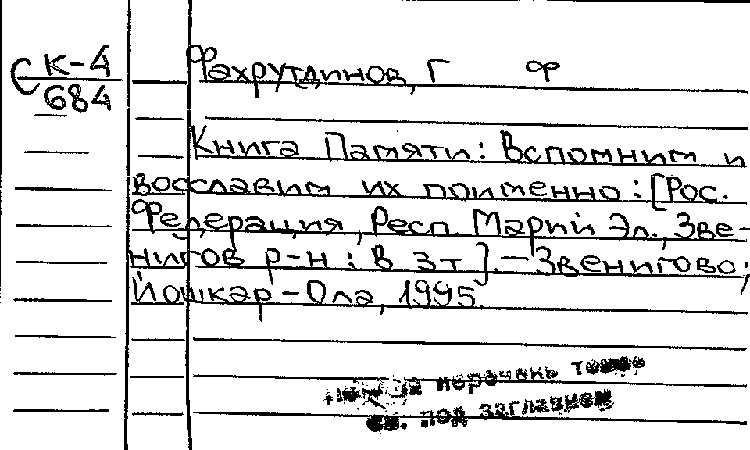 С К-4
684
Фахрутдинов, Г Ф
Книга Памяти: Вспомним и
восславим их поименно: [Рос.
Федерация, Респ. Марий Эл., Зве-
нигов р-н: В 3т]. - Звенигово;
Йошкар-Ола, 1995.
перечень томов
см. под заглавием